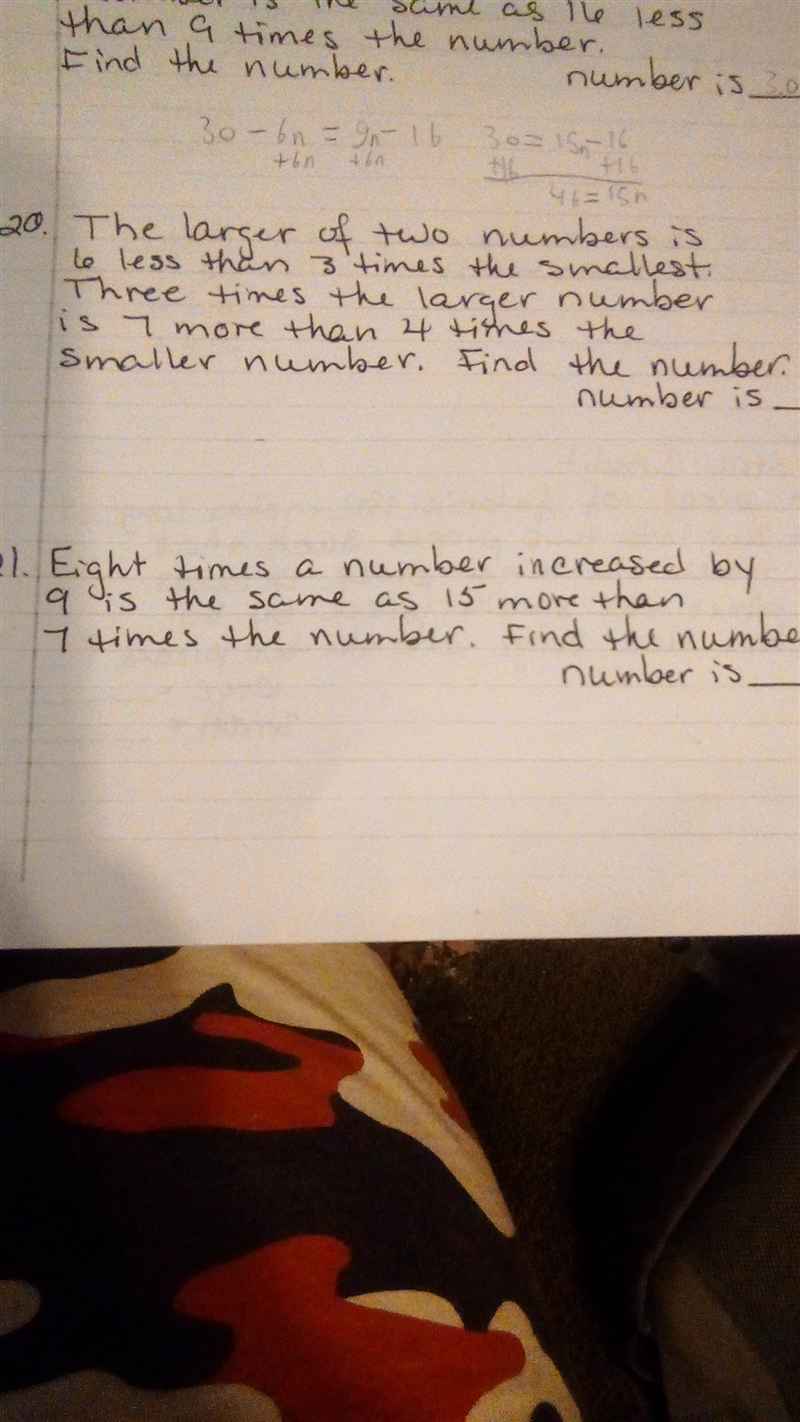 is the same as 16 less
than 9 times the number.
Find the number.
number is 30
30 - 6n = 9n - 16
+6n +6n
30 = 15n - 16
+16 +16
46 = 15n
20. The larger of two numbers is
6 less than 3 times the smallest.
Three times the larger number
is 7 more than 4 times the
smaller number. Find the number.
number is
21. Eight times a number increased by
9 is the same as 15 more than
7 times the number. Find the numbe
number is